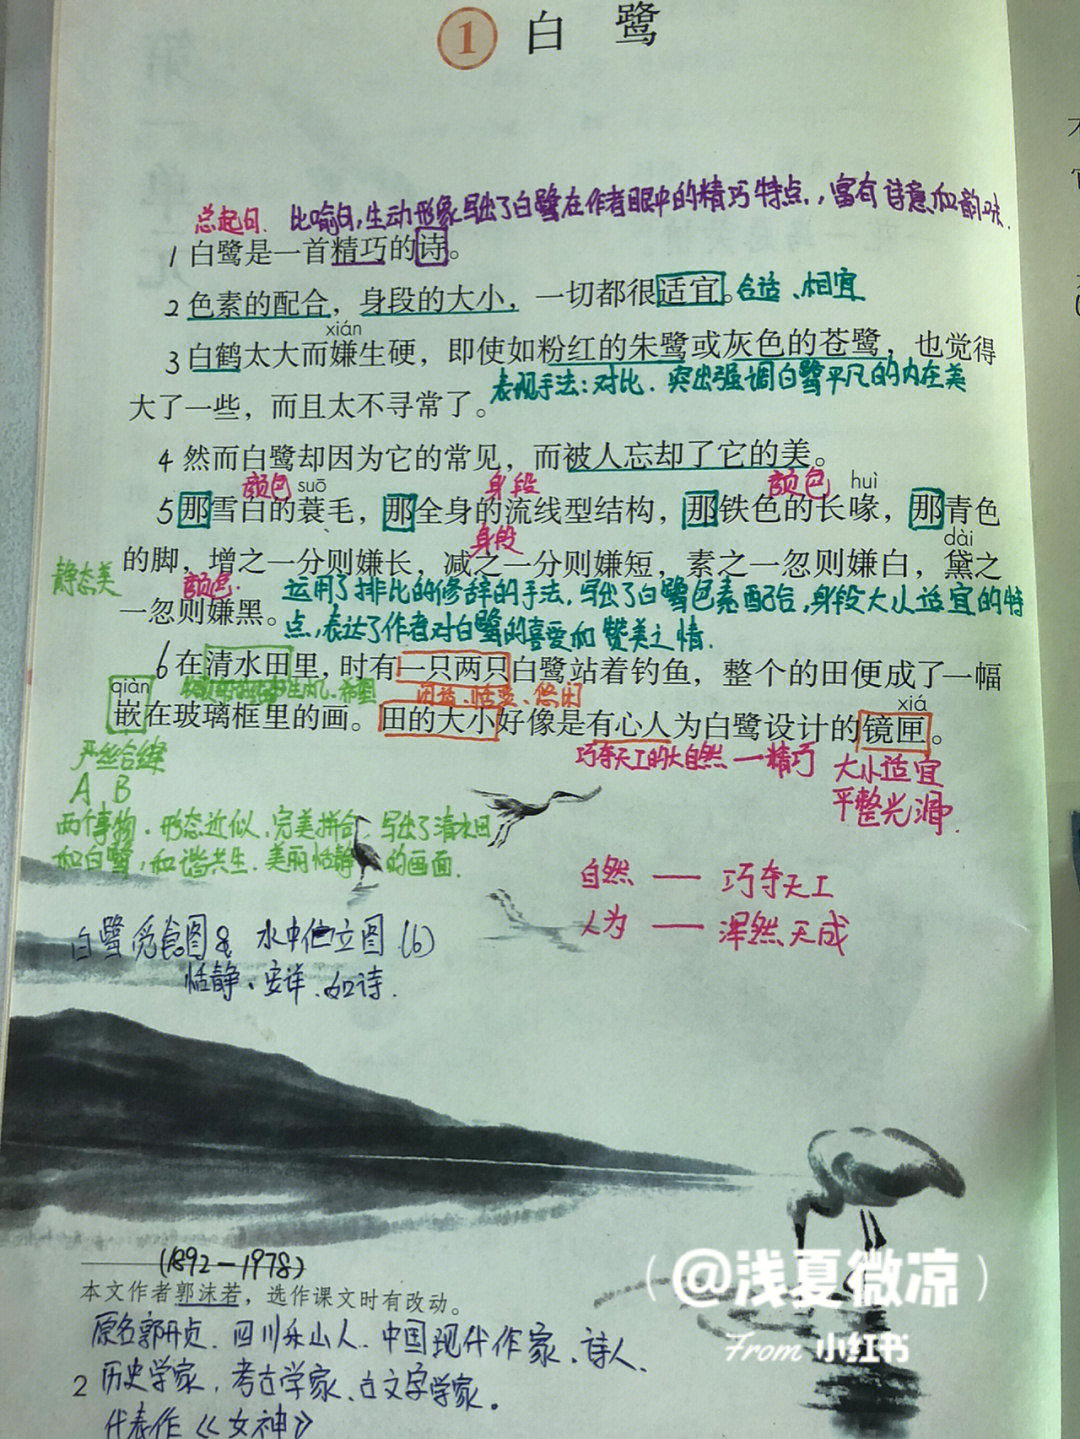 1 白鹭
总起句. 比喻句,生动形象写出了白鹭在作者眼中的精巧特点.,富有诗意和韵味.
1 白鹭是一首精巧的诗。
2 色素的配合，身段的大小，一切都很适宜。合适、相宜
xián
3 白鹤太大而嫌生硬，即使如粉红的朱鹭或灰色的苍鹭，也觉得
表现手法:对比. 突出强调白鹭平凡的内在美
大了一些，而且太不寻常了。
4 然而白鹭却因为它的常见，而被人忘却了它的美。
颜色 suō 身段 颜色 huì
5 那雪白的蓑毛，那全身的流线型结构，那铁色的长喙，那青色
身段 dài
的脚，增之一分则嫌长，减之一分则嫌短，素之一忽则嫌白，黛之
静态美 颜色. 运用了排比的修辞的手法,写出了白鹭色素配合,身段大小适宜的特
一忽则嫌黑。
点,表达了作者对白鹭的喜爱和赞美之情.
6 在清水田里，时有一只两只白鹭站着钓鱼，整个的田便成了一幅
qiàn 闲适、恬淡、悠闲 xiá
嵌在玻璃框里的画。田的大小好像是有心人为白鹭设计的镜匣。
严丝合缝 巧夺天工的大自然 — 精巧 大小适宜
A B 平整光滑.
两个事物.形态近似、完美拼合.写出了清水田
和白鹭,和谐共生.美丽恬静的画面.
自然 — 巧夺天工
人为 — 浑然天成
白鹭觅食图& 水中伫立图 (6)
恬静、安详、如诗.
(1892-1978)
本文作者郭沫若，选作课文时有改动。
原名郭开贞.四川乐山人.中国现代作家、诗人、
2 历史学家,考古学家、古文字学家。
代表作《女神》
(@浅夏微凉)
From 小红书